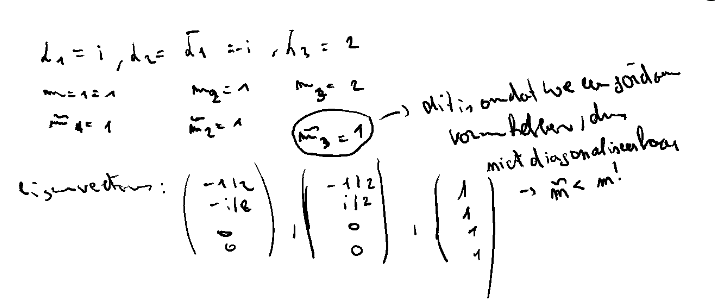 λ₁ = i , λ₂ = λ̄₁ = -i , λ₃ = 2
m₁ = 1 m₂ = 1 m₃ = 2
m̃₁ = 1 m̃₂ = 1 m̃₃ = 1 → dit is omdat we een jördan
vorm hebben, dus
niet diagonaliseerbaar
→ m̃ < m!
Eigenvectors: (-1/2 -i/2 0 0) , (-1/2 i/2 0 0) , (1 1 1 1)